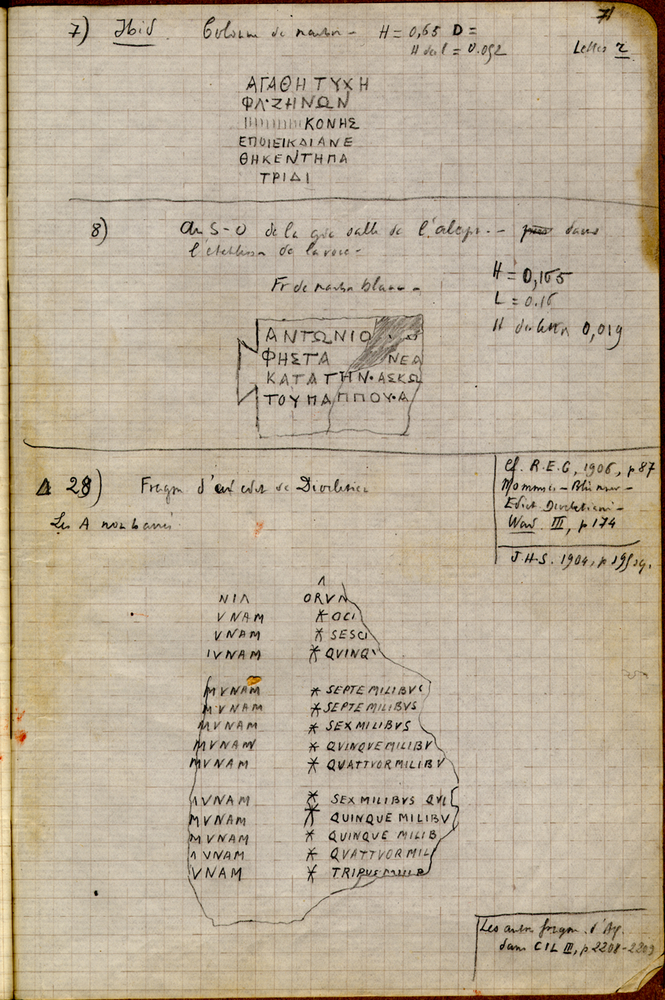 71
7) Ibid. Colonne de marbre - H = 0,65 D =
H de l = 0.052
Lettes
ΑΓΑΘΗ ΤΥΧΗ
ΦΛ·ΖΗΝΩΝ
ΚΟΝΗΣ
ΕΠΟΙΕΙΚΑΙΑΝΕ
ΘΗΚΕΝΤΗΠΑ
ΤΡΙΔΙ
8) Au S-O de la gde salle de l'alep. - dans
l'
Fr de marbre blanc -
H = 0,165
L = 0.16
H 0,019
ΑΝΤΩΝΙΟ
ΦΗΣΤΑ ΝΕΑ
ΚΑΤΑ ΤΗΝ·ΑΣΚΩ
ΤΟΥ ΠΑΠΠΟΥ·Α
Δ 28) Fragm d'un edit de Diocletien
Les A non barrés.
Cf. R.E.G, 1906, p 87
Mommsen - Blümner -
Edict Diocletiani -
Wad. III, p 174
J.H.S. 1904, p 195 sq.
NIΛ ORVM
VNAM ⚹ OCI
VNAM ⚹ SESCI
IVNAM ⚹ QVINQ
MVNAM ⚹ SEPTEMILIBVS
MVNAM ⚹ SEPTEMILIBVS
MVNAM ⚹ SEXMILIBVS
MVNAM ⚹ QVINQVEMILIBV
MVNAM ⚹ QVATTVORMILIBV
ΛVNAM ⚹ SEXMILIBVS QVI
MVNAM ⚹ QUINQUE MILIBV
MVNAM ⚹ QUINQUE MILIB
ΛVNAM ⚹ QVATTVORMIL
VNAM ⚹ TRIBUSMILIB
Les autres fragm. d'Ay.
dans CIL III, p 2208-2209